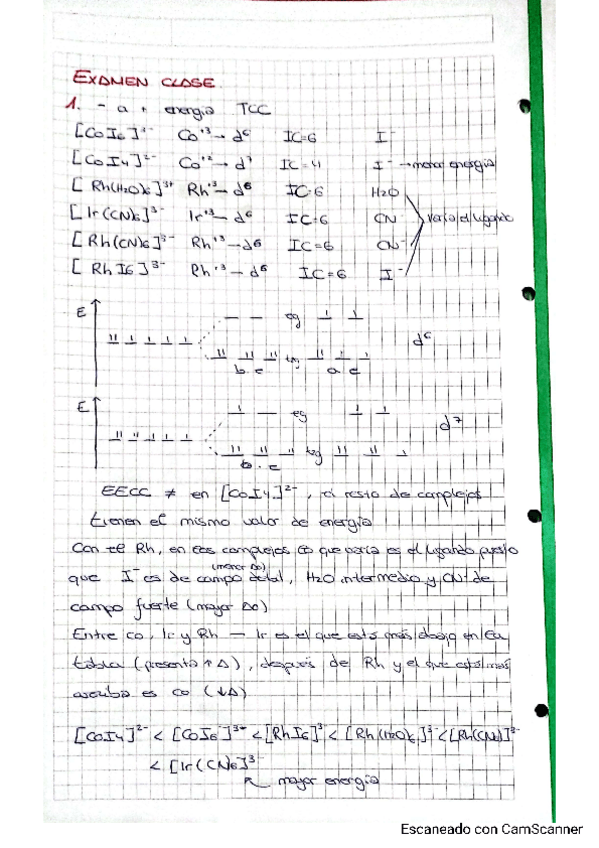 EXAMEN CLASE
1. - a + energía TCC
[CoI6]3- Co+3→ d6 IC=6 I-
[CoI4]2- Co+2→ d7 IC=4 I- → menor energía
[Rh(H2O)6]3+ Rh+3→ d6 IC=6 H2O
[Ir(CN)6]3- Ir+3→ d6 IC=6 CN- varía el ligando
[Rh(CN)6]3- Rh+3→ d6 IC=6 CN-
[RhI6]3- Rh+3→ d6 IC=6 I-
E eg
d6
t2g
b.c a c
E eg
d7
t2g
b.c
EECC ≠ en [CoI4]2-, el resto de complejos
tienen el mismo valor de energía
Con el Rh, en los complejos lo que varía es el ligando puesto
(menor Δo)
que I- es de campo debil, H2O intermedio y CN- de
campo fuerte (mayor Δo)
Entre Co, Ir y Rh — Ir es el que está más abajo en la
tabla (presenta ↑Δ), después de Rh y el que está más
arriba es Co (↓Δ)
[CoI4]2- < [CoI6]3- < [RhI6]3- < [Rh(H2O)6]3- < [Rh(CN)6]3-
< [Ir(CN)6]3-
mayor energía
Escaneado con CamScanner